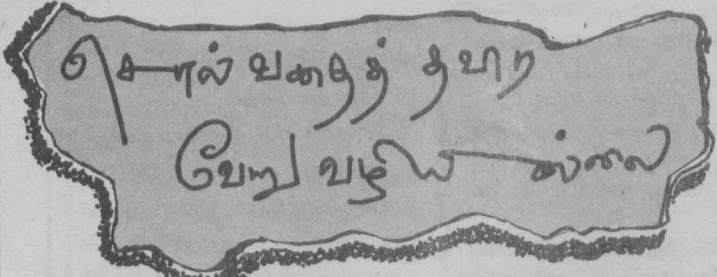 சொல்வதைத் தவிற
வேறு வழியில்லை